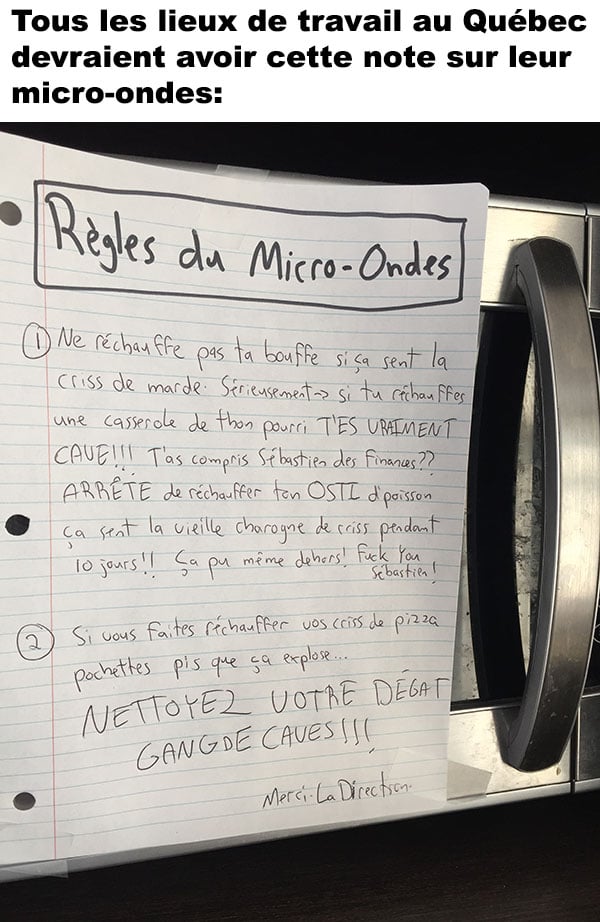 Tous les lieux de travail au Québec
devraient avoir cette note sur leur
micro-ondes:
Règles du Micro-Ondes
① Ne réchauffe pas ta bouffe si ça sent la
criss de marde. Sérieusement → si tu réchauffes
une casserole de thon pourri T'ES VRAIMENT
CAVE!!! T'as compris Sébastien des Finances??
ARRÊTE de réchauffer ton OSTI d'poisson
ça sent la vieille charogne de criss pendant
10 jours!! Ça pu même dehors! Fuck You
Sébastien!
② Si vous faites réchauffer vos criss de pizza
pochettes pis que ça explose...
NETTOYEZ VOTRE DÉGAT
GANG DE CAVES!!!
Merci - La Direction -